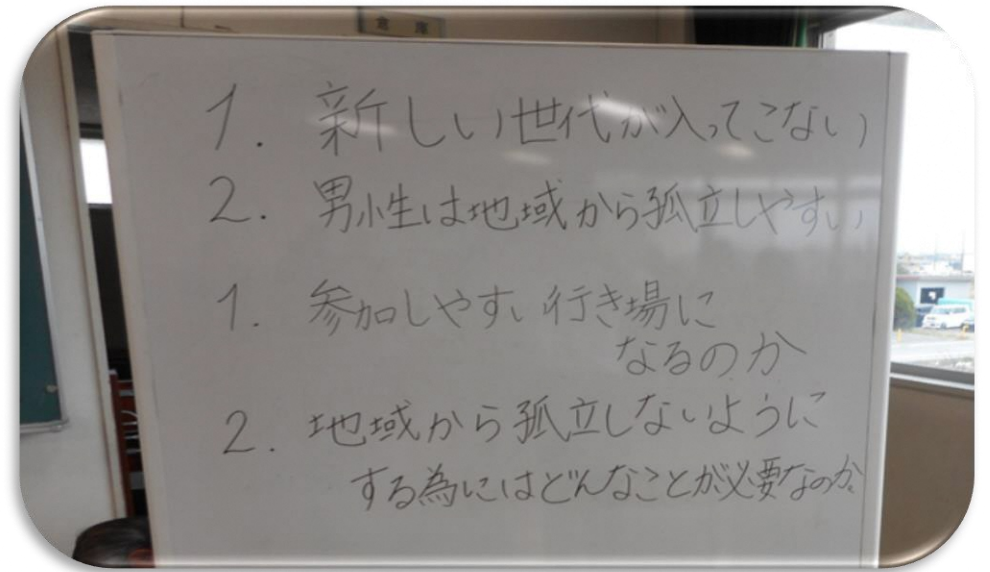 倉庫
1. 新しい世代が入ってこない
2. 男性は地域から孤立しやすい
1. 参加しやすい行き場に
なるのか
2. 地域から孤立しないように
する為にはどんなことが必要なのか。